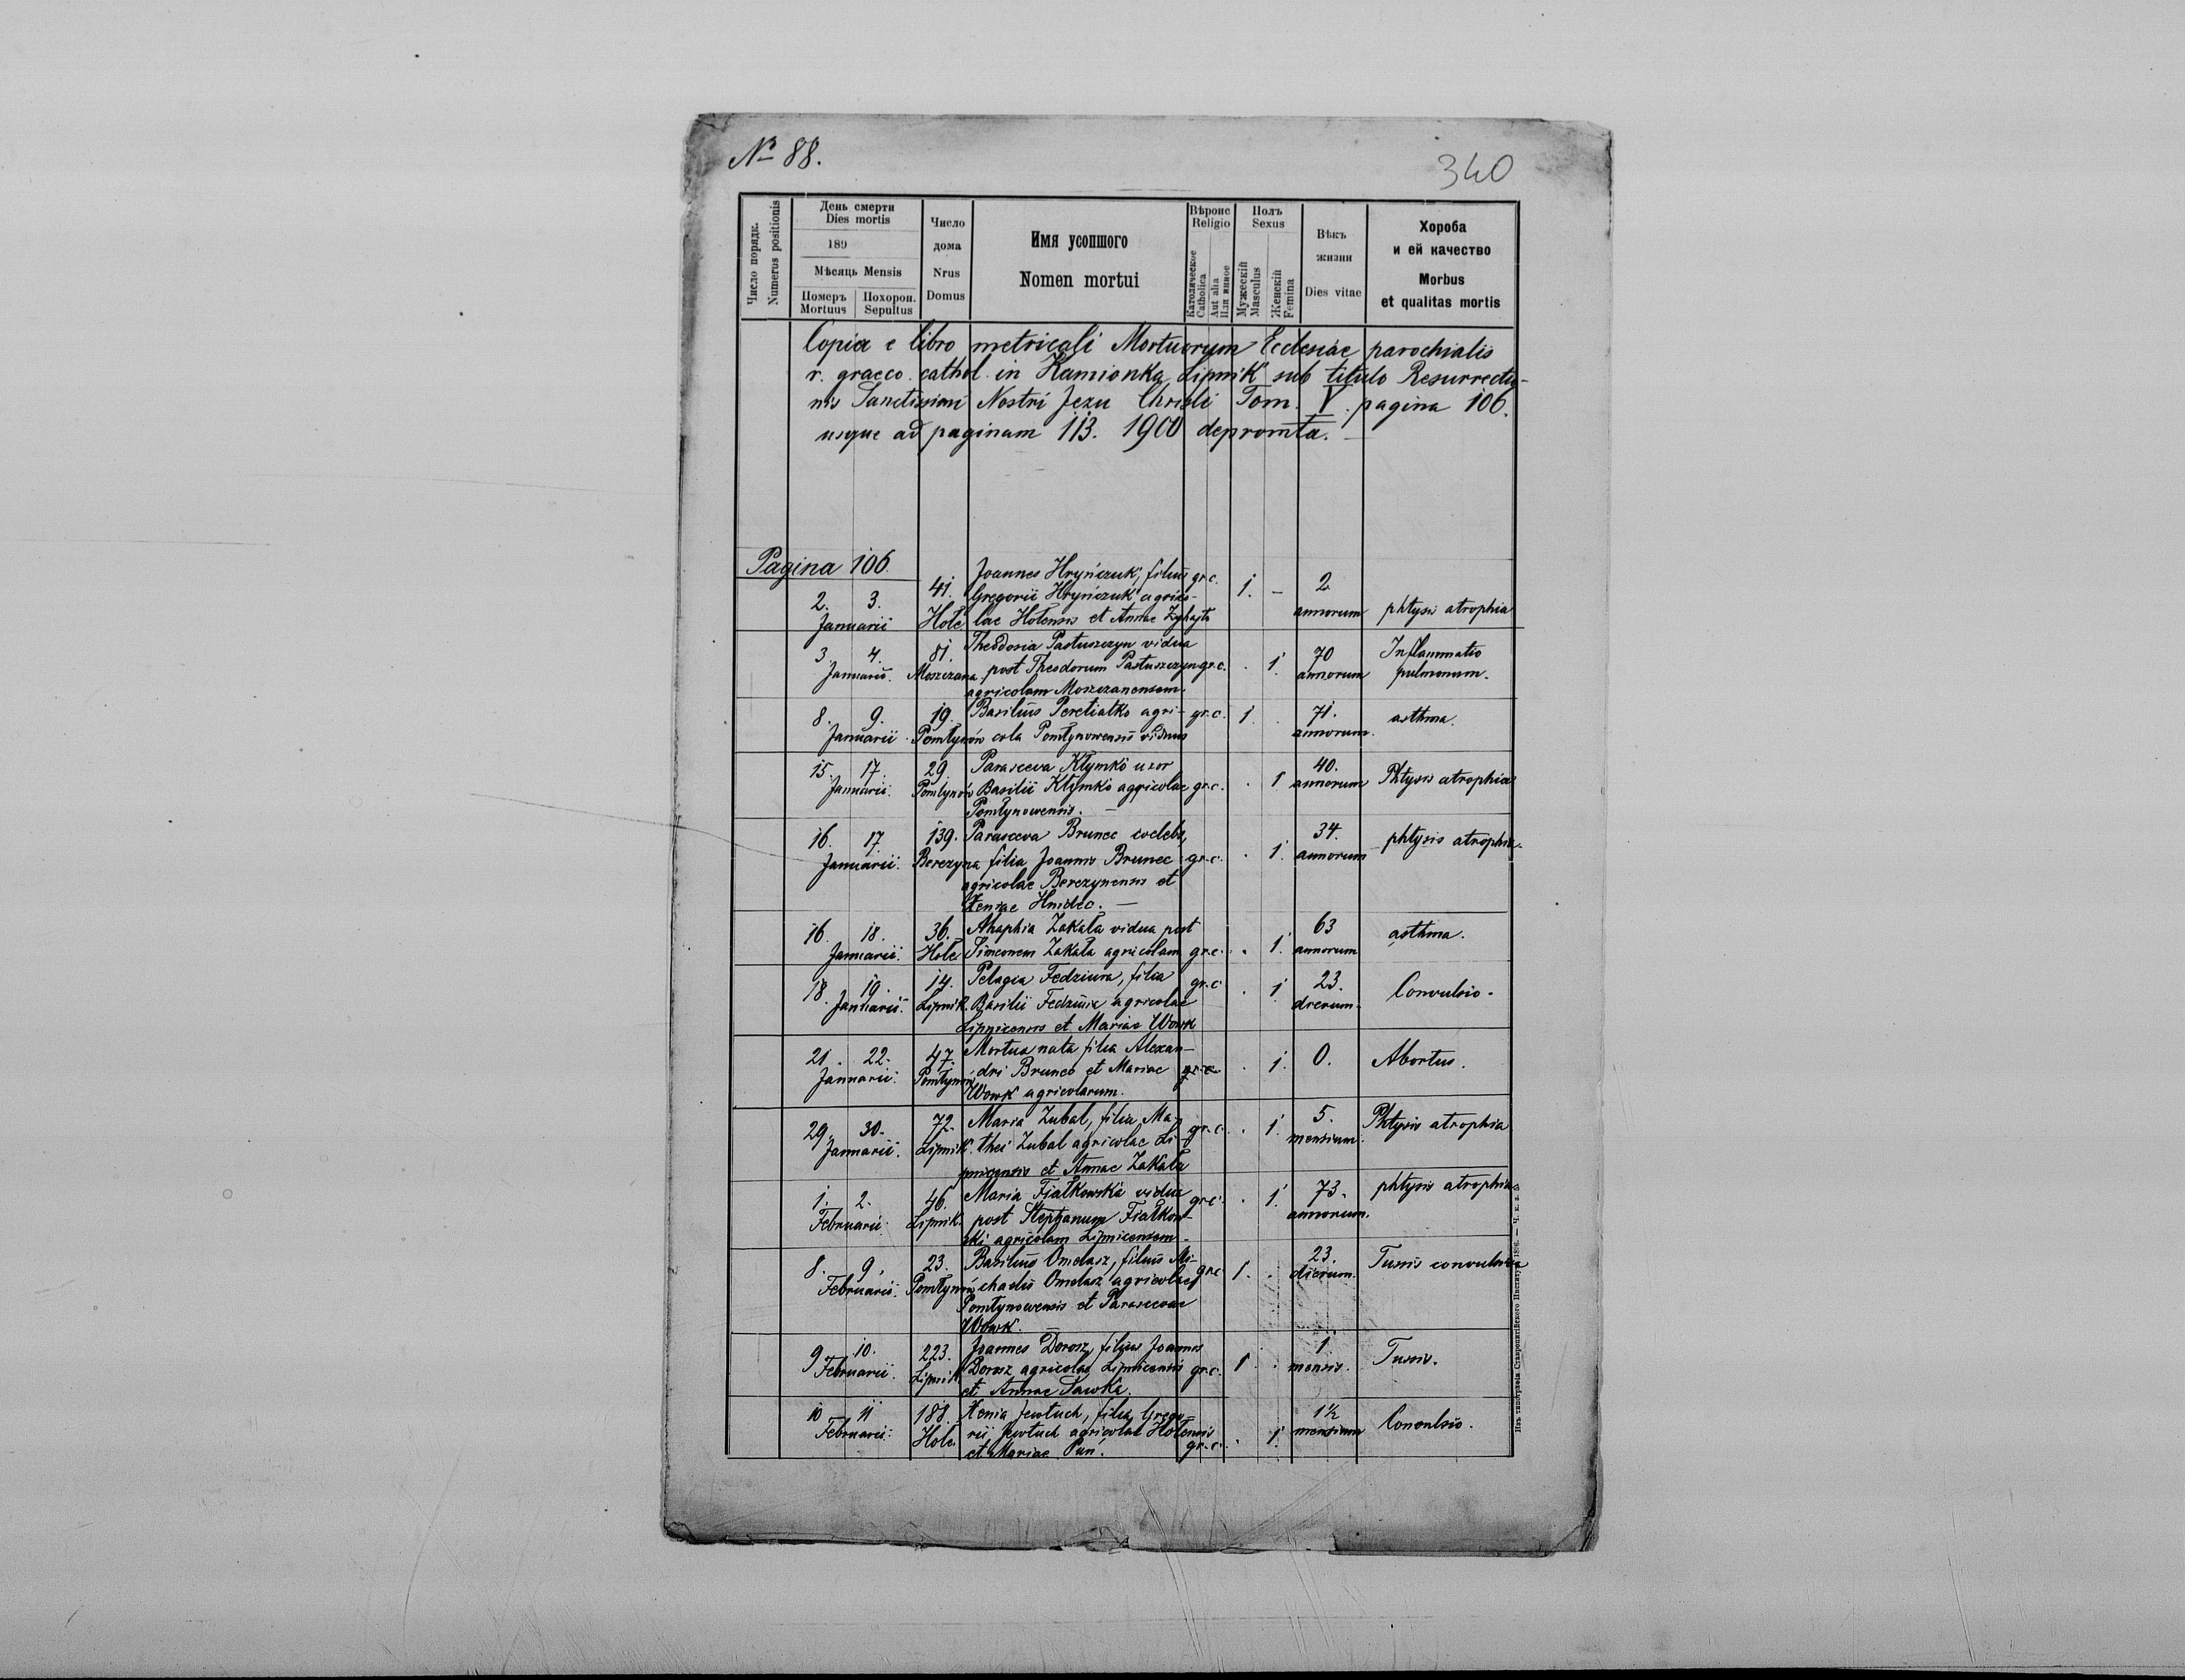 № 88.
340
Число порядк.
Numerus positionis
День смерти
Dies mortis
189
Мѣсяць Mensis
Померъ
Mortuus
Похорон.
Sepultus
Число
дома
Nrus
Domus
Имя усопшого
Nomen mortui
Вѣроис
Religio
Католическое
Catholica
Aut alia
Или инное
Полъ
Sexus
Мужескій
Masculus
Женскій
Femina
Вѣкъ
жизни
Dies vitae
Хороба
и ей качество
Morbus
et qualitas mortis
Copia e libro metricali Mortuorum Ecclesiae parochialis
r. graeco cathol. in Kamionka Lipnik sub titulo Resurrectio-
nis Sanctissimi Nostri Jezu Christi Tom. V. pagina 106.
usque ad paginam 113. 1900 depromta.
Pagina 106.
2. 3. Januarii
41. Hole
Joannes Hryńczuk, filius
Gregorii Hryńczuk agrico-
lae Holensis et Annae
gr. c. 1. -
2 annorum
phtysis atrophia
3. 4. Januarii.
81. Moszczana
Theodosia Pastuszczyn vidua
post Theodorum Pastuszczyn
agricolam Moszczanensem.
gr. c. . 1.
70 annorum
Inflammatio
pulmonum.
8. 9. Januarii
19. Pomłynów
Basilius Peretiatko agri-
cola Pomłynowensis viduus
gr. c. 1. .
71. annorum.
asthma.
15. 17. Januarii.
29. Pomłynów
Parasceva Kłymko uxor
Basilii Kłymko agricolae
Pomłynowensis. -
gr. c. . 1
40. annorum
Phtysis atrophia
16. 17. Januarii.
139. Berezyna
Parasceva Brunec coelebs,
filia Joannis Brunec
agricolae Berezynensis et
Xeniae Hnidec. -
gr. c. . 1.
34. annorum
phtysis atrophia.
16. 18. Januarii.
36. Hole
Ahaphia Zakała vidua post
Simeonem Zakała agricolam
gr. c. . 1.
63 annorum
asthma.
18. 19. Januarii.
14. Lipnik.
Pelagia Fedziura, filia
Basilii Fedziura agricolae
Lipnicensis et Mariae Wowk
gr. c . 1
23. dierum.
Convulsio.
21. 22. Januarii.
47. Pomłynów
Mortua nata filia Alexan-
dri Brunec et Mariae
Wowk agricolarum.
gr. c. . 1.
0.
Abortus.
29. 30. Januarii.
72. Lipnik.
Maria Zubal, filia Ma-
thei Zubal agricolae Li-
pnicensis et Annae Zakała
gr. c. . 1.
5. mensium.
Phtysis atrophia
1. 2. Februarii.
46. Lipnik.
Maria Fiałkowska vidua
post Stephanum Fiałkow-
ski agricolam Lipnicensem.
gr. c. . 1
73. annorum.
phtysis atrophia
8. 9. Februarii.
23. Pomłynów
Basilius Omelasz, filius Mi-
chaelis Omelasz agricolae
Pomłynowensis et Parascevae
Wowk.
gr. c 1. .
23. dierum.
Tussis convulsiva
9 10. Februarii.
223. Lipnik.
Joannes Dorosz, filius Joannis
Dorosz agricolae Lipnicensis
et Annae Sawka.
gr. c. 1 .
1 mensis.
Tussis.
10 11 Februarii.
188. Hole.
Xenia Jewtuch, filia Grego-
rii Jewtuch agricolae Holensis
et Mariae Pun.
gr. c. . 1.
1½ mensium
Convulsio.
Изъ типографіи Ставропигійского Института